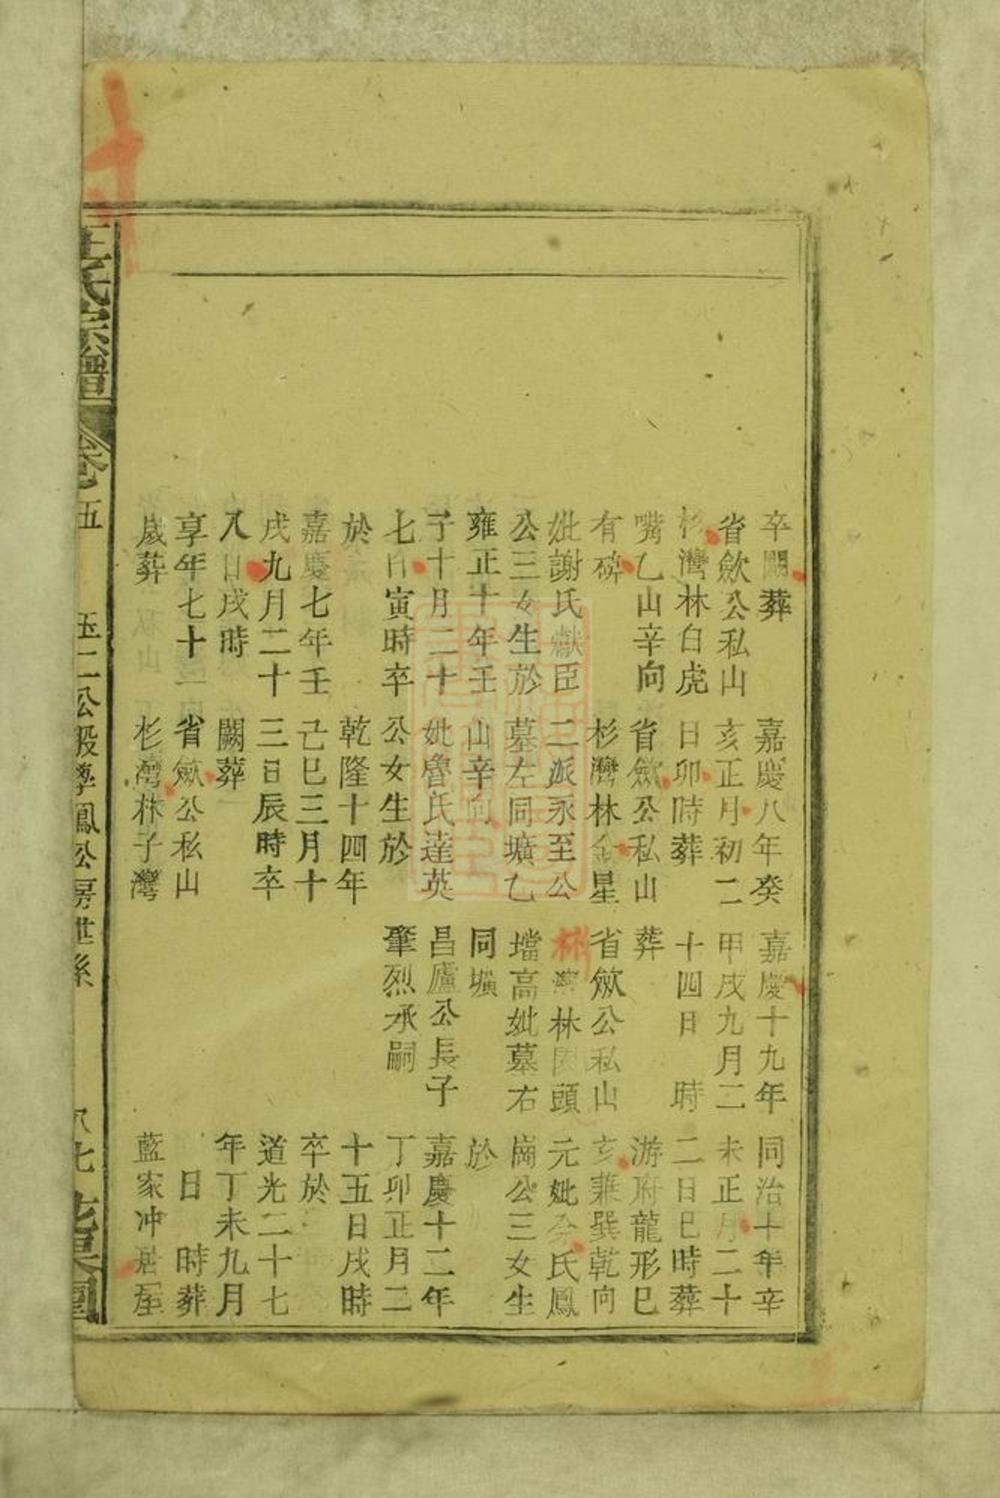 卒闕葬
省歛公私山
杉灣林白虎
嘴乙山辛向
有碑
妣謝氏獻臣
公三女生於
雍正十年壬
子十月二十
七日寅時卒
於
嘉慶七年壬
戌九月二十
八日戌時
享年七十一
歲葬
嘉慶八年癸
亥正月初二
日卯時葬
省歛公私山
杉灣林金星
二派永至公
墓左同壙乙
山辛向
妣魯氏達英
公女生於
乾隆十四年
己巳三月十
三日辰時卒
闕葬
省歛公私山
杉灣林子灣
嘉慶十九年
甲戌九月二
十四日 時
葬
省歛公私山
林頭
壋高妣墓右
同壙
昌廬公長子
肇烈承嗣
同治十年辛
未正月二十
二日巳時葬
游府龍形巳
亥兼巽乾向
元妣余氏鳳
崗公三女生
於
嘉慶十二年
丁卯正月二
十五日戌時
卒於
道光二十七
年丁未九月
日 時葬
藍家冲居屋
氏宗譜 卷五 二公股學鳳公房世系 八七